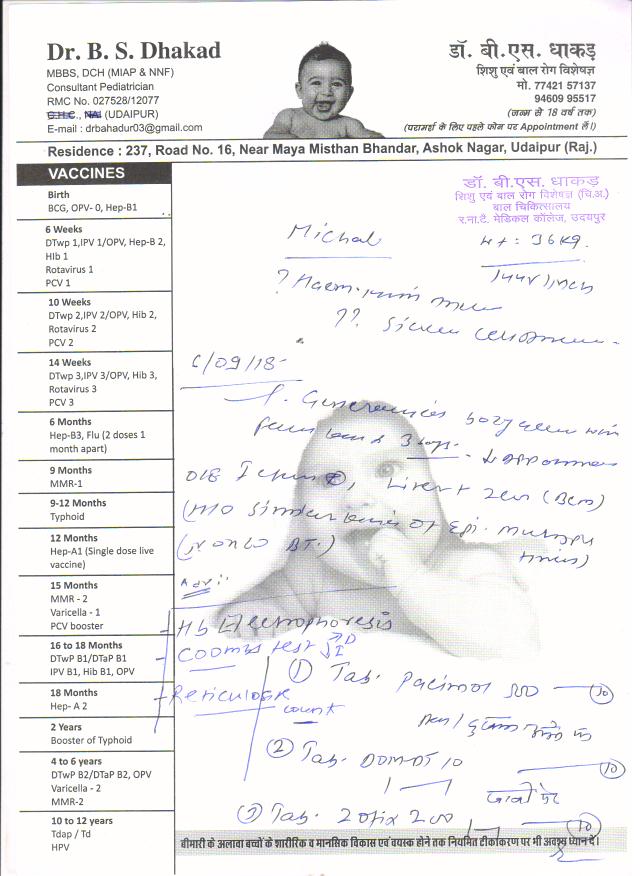 Dr. B. S. Dhakad
MBBS, DCH (MIAP & NNF)
Consultant Pediatrician
RMC No. 027528/12077
(UDAIPUR)
E-mail : drbahadur03@gmail.com
डॉ. बी.एस. धाकड़
शिशु एवं बाल रोग विशेषज्ञ
मो. 77421 57137
94609 95517
(जन्म से 18 वर्ष तक)
(परामर्श के लिए पहले फोन पर Appointment लें।)
Residence : 237, Road No. 16, Near Maya Misthan Bhandar, Ashok Nagar, Udaipur (Raj.)
VACCINES
Birth
BCG, OPV- 0, Hep-B1
6 Weeks
DTwp 1,IPV 1/OPV, Hep-B 2,
HIb 1
Rotavirus 1
PCV 1
10 Weeks
DTwp 2,IPV 2/OPV, Hib 2,
Rotavirus 2
PCV 2
14 Weeks
DTwp 3,IPV 3/OPV, Hib 3,
Rotavirus 3
PCV 3
6 Months
Hep-B3, Flu (2 doses 1
month apart)
9 Months
MMR-1
9-12 Months
Typhoid
12 Months
Hep-A1 (Single dose live
vaccine)
15 Months
MMR - 2
Varicella - 1
PCV booster
16 to 18 Months
DTwP B1/DTaP B1
IPV B1, Hib B1, OPV
18 Months
Hep- A 2
2 Years
Booster of Typhoid
4 to 6 years
DTwP B2/DTaP B2, OPV
Varicella - 2
MMR-2
10 to 12 years
Tdap / Td
HPV
डॉ. बी.एस. धाकड़
शिशु एवं बाल रोग विशेषज्ञ (चि.अ.)
बाल चिकित्सालय
र.ना.टै. मेडिकल कॉलेज, उदयपुर
Michal
wt: 36Kg.
14yr/Mch
? Haem.
??
6/09/18-
3 days -
O/E Icterus, Liver + 2cm (BCM)
(H/O Similar of Epi. Multiple times)
(No H/O BT.)
Adv:
Hb Electrophoresis
COOMBS test D
I
Reticulocyte
count
① Tab. Pacimol 500 — 10
② Tab. DOM-DT 10 — 10
खाली पेट
③ Tab. Zofix 200 — 10
बीमारी के अलावा बच्चों के शारीरिक व मानसिक विकास एवं वयस्क होने तक नियमित टीकाकरण पर भी अवश्य ध्यान दें।